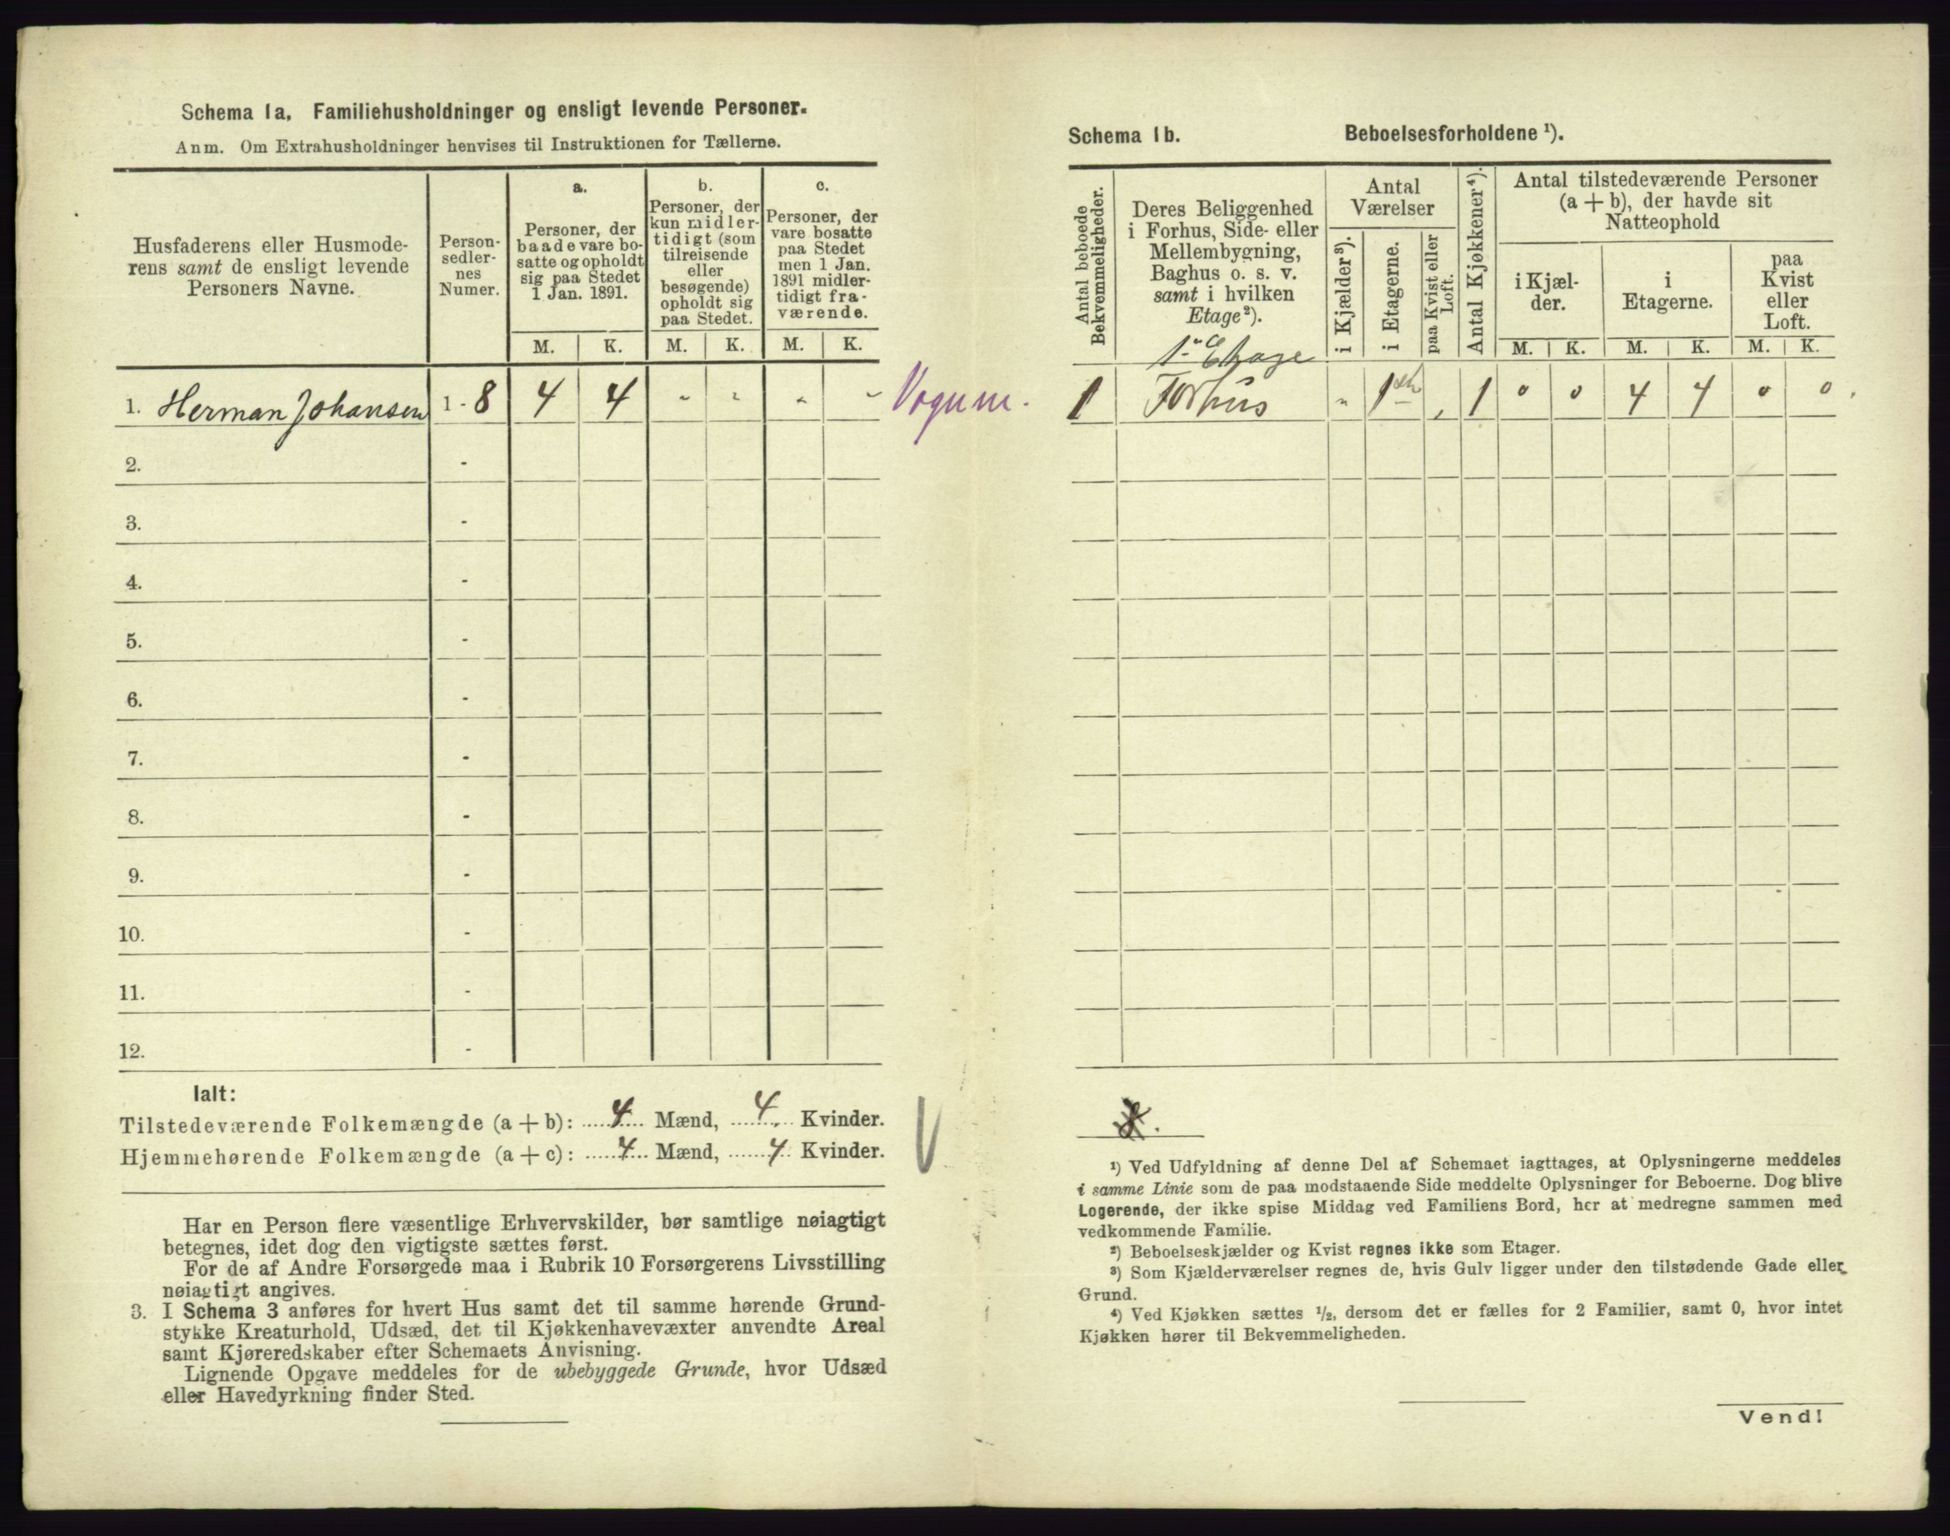 Schema 1a. Familiehusholdninger og ensligt levende Personer.
Anm. Om Extrahusholdninger henvises til Instruktionen for Tællerne.
Husfaderens eller Husmode-
rens samt de ensligt levende
Personers Navne.
Person-
sedler-
nes
Numer.
a.
Personer, der
baade vare bo-
satte og opholdt
sig paa Stedet
1 Jan. 1891.
b.
Personer, der
kun midler-
tidigt (som
tilreisende
eller
besøgende)
opholdt sig
paa Stedet.
c.
Personer, der
vare bosatte
paa Stedet
men 1 Jan.
1891 midler-
tidigt fra-
værende.
M. K. M. K. M. K.
1. Herman Johansen 1 - 8 4 4 - - - -
2. -
3. -
4. -
5. -
6. -
7. -
8. -
9. -
10. -
11. -
12. -
Ialt:
Tilstedeværende Folkemængde (a + b): 4 Mænd, 4 Kvinder.
Hjemmehørende Folkemængde (a + c): 4 Mænd, 4 Kvinder.
Har en Person flere væsentlige Erhvervskilder, bør samtlige nøiagtigt
betegnes, idet dog den vigtigste sættes først.
For de af Andre Forsørgede maa i Rubrik 10 Forsørgerens Livsstilling
nøiagtigt angives.
3. I Schema 3 anføres for hvert Hus samt det til samme hørende Grund-
stykke Kreaturhold, Udsæd, det til Kjøkkenhavevæxter anvendte Areal
samt Kjøreredskaber efter Schemaets Anvisning.
Lignende Opgave meddeles for de ubebyggede Grunde, hvor Udsæd
eller Havedyrkning finder Sted.
Schema 1b. Beboelsesforholdene ¹).
Antal beboede
Bekvemmeligheder.
Deres Beliggenhed
i Forhus, Side- eller
Mellembygning,
Baghus o. s. v.
samt i hvilken
Etage²).
Antal
Værelser
i Kjælder³).
i Etagerne.
paa Kvist eller
Loft.
Antal Kjøkkener⁴).
Antal tilstedeværende Personer
(a + b), der havde sit
Natteophold
i Kjæl-
der.
i
Etagerne.
paa
Kvist
eller
Loft.
M. K. M. K. M. K.
1ᵉ Etage
1 Forhus " 1 1 0 0 4 4 0 0
¹) Ved Udfyldning af denne Del af Schemaet iagttages, at Oplysningerne meddeles
i samme Linie som de paa modstaaende Side meddelte Oplysninger for Beboerne. Dog blive
Logerende, der ikke spise Middag ved Familiens Bord, her at medregne sammen med
vedkommende Familie.
²) Beboelseskjælder og Kvist regnes ikke som Etager.
³) Som Kjælderværelser regnes de, hvis Gulv ligger under den tilstødende Gade eller
Grund.
⁴) Ved Kjøkken sættes ½, dersom det er fælles for 2 Familier, samt 0, hvor intet
Kjøkken hører til Bekvemmeligheden.
Vend!